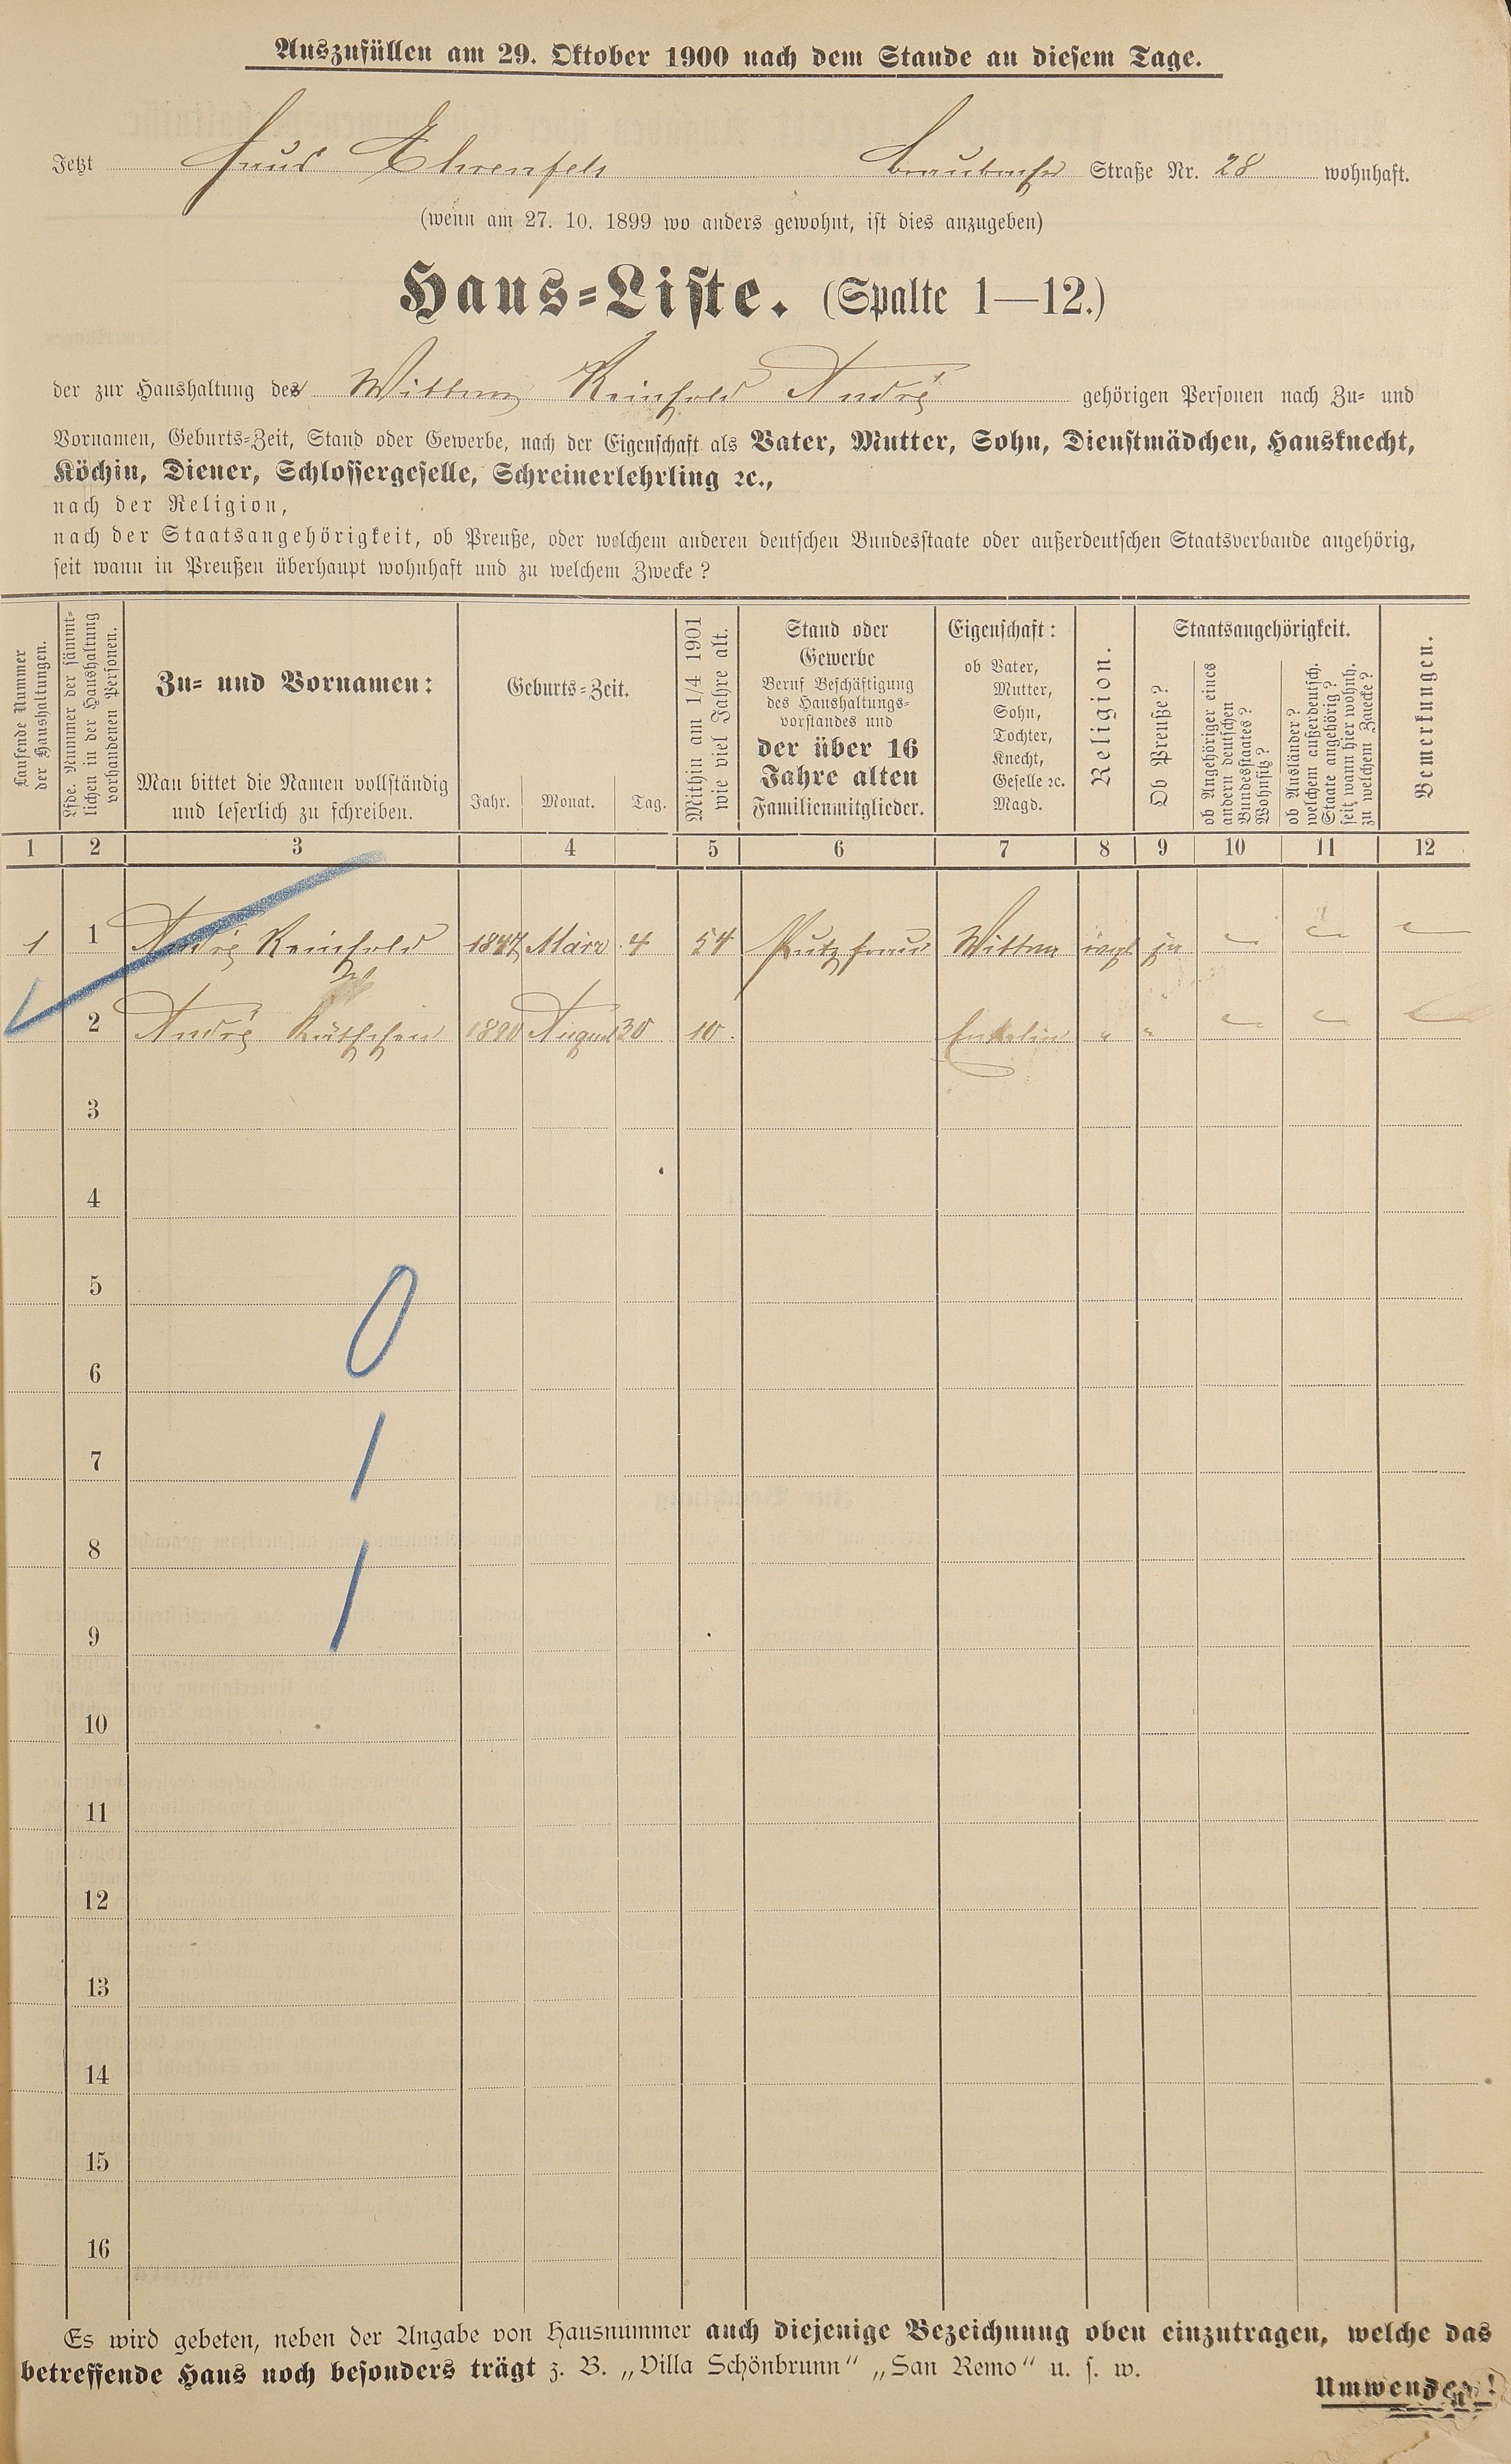 Auszufüllen am 29. Oktober 1900 nach dem Stande an diesem Tage.
Jetzt Haus Ehrenfels Braubacher Straße Nr. 28 wohnhaft.
(wenn am 27. 10. 1899 wo anders gewohnt, ist dies anzugeben)
Haus-Liste. (Spalte 1—12.)
der zur Haushaltung des Wittwe Reinhold André gehörigen Personen nach Zu- und
Vornamen, Geburts-Zeit, Stand oder Gewerbe, nach der Eigenschaft als Vater, Mutter, Sohn, Dienstmädchen, Hausknecht,
Köchin, Diener, Schlossergeselle, Schreinerlehrling ꝛc.,
nach der Religion,
nach der Staatsangehörigkeit, ob Preuße, oder welchem anderen deutschen Bundesstaate oder außerdeutschen Staatsverbande angehörig,
seit wann in Preußen überhaupt wohnhaft und zu welchem Zwecke?
Laufende Nummer
der Haushaltungen.
Lfde. Nummer der sämmt-
lichen in der Haushaltung
vorhandenen Personen.
Zu- und Vornamen:
Man bittet die Namen vollständig
und leserlich zu schreiben.
Geburts-Zeit.
Jahr. Monat. Tag.
Mithin am 1/4 1901
wie viel Jahre alt.
Stand oder
Gewerbe
Beruf Beschäftigung
des Haushaltungs-
vorstandes und
der über 16
Jahre alten
Familienmitglieder.
Eigenschaft:
ob Vater,
Mutter,
Sohn,
Tochter,
Knecht,
Geselle ꝛc.
Magd.
Religion.
Staatsangehörigkeit.
Ob Preuße?
ob Angehöriger eines
andern deutschen
Bundesstaates?
Wohnsitz?
ob Ausländer?
welchem außerdeutsch.
Staate angehörig?
seit wann hier wohnh.
zu welchem Zwecke?
Bemerkungen.
1 2 3 4 5 6 7 8 9 10 11 12
1 1 André Reinhold 1847 März 4 54 Putzfrau Wittwe evgl ja — — —
2 André Käthchen 1890 August 30 10. Enkelin " " — — —
3
4
5
6
7
8
9
10
11
12
13
14
15
16
0
1
1
Es wird gebeten, neben der Angabe von Hausnummer auch diejenige Bezeichnung oben einzutragen, welche das
betreffende Haus noch besonders trägt z. B. „Villa Schönbrunn“ „San Remo“ u. s. w.
Umwenden!